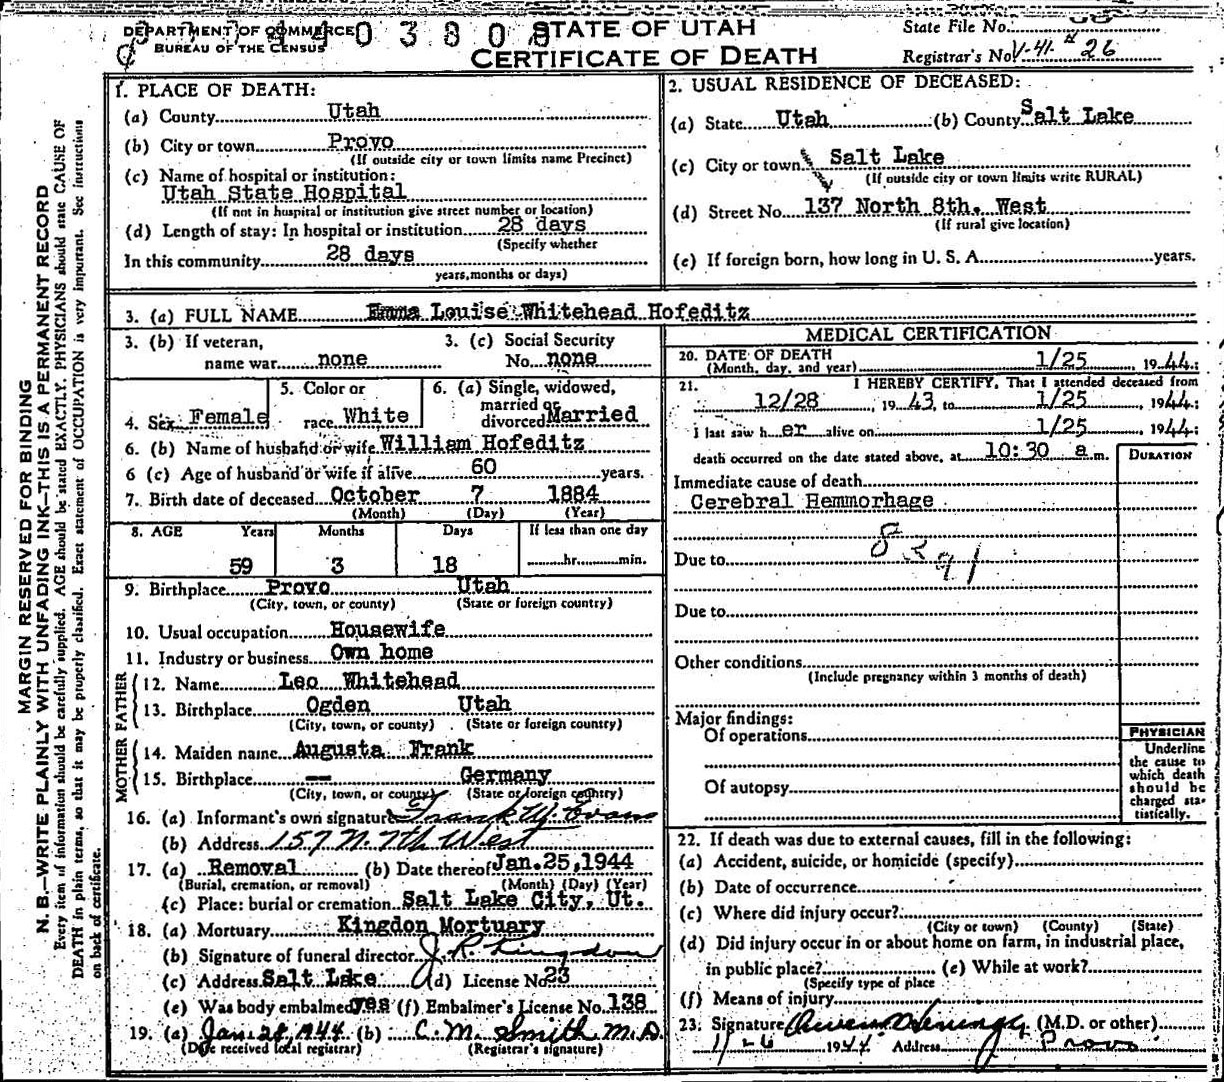 DEPARTMENT OF COMMERCE
BUREAU OF THE CENSUS
STATE OF UTAH
CERTIFICATE OF DEATH
State File No.
Registrar's No. V-41 # 26
MARGIN RESERVED FOR BINDING
N. B.—WRITE PLAINLY WITH UNFADING INK—THIS IS A PERMANENT RECORD
Every item of information should be carefully supplied. AGE should be stated EXACTLY. PHYSICIANS should state CAUSE OF
DEATH in plain terms, so that it may be properly classified. Exact statement of OCCUPATION is very important. See instructions
on back of certificate.
1. PLACE OF DEATH:
(a) County Utah
(b) City or town Provo
(If outside city or town limits name Precinct)
(c) Name of hospital or institution:
Utah State Hospital
(If not in hospital or institution give street number or location)
(d) Length of stay: In hospital or institution 28 days
(Specify whether
In this community 28 days
years, months or days)
2. USUAL RESIDENCE OF DECEASED:
(a) State Utah (b) County Salt Lake
(c) City or town Salt Lake
(If outside city or town limits write RURAL)
(d) Street No. 137 North 8th. West
(If rural give location)
(e) If foreign born, how long in U. S. A. years.
3. (a) FULL NAME Emma Louise Whitehead Hofeditz
3. (b) If veteran, 3. (c) Social Security
name war none No. none
4. Sex Female 5. Color or race White 6. (a) Single, widowed, married or divorced Married
6. (b) Name of husband or wife William Hofeditz
6 (c) Age of husband or wife if alive 60 years.
7. Birth date of deceased October 7 1884
(Month) (Day) (Year)
8. AGE Years Months Days If less than one day
59 3 18 hr. min.
9. Birthplace Provo Utah
(City, town, or county) (State or foreign country)
10. Usual occupation Housewife
11. Industry or business Own home
FATHER
12. Name Leo Whitehead
13. Birthplace Ogden Utah
(City, town, or county) (State or foreign country)
MOTHER
14. Maiden name Augusta Frank
15. Birthplace — Germany
(City, town, or county) (State or foreign country)
16. (a) Informant's own signature Frank W. Evans
(b) Address 157 N. 7th West
17. (a) Removal (b) Date thereof Jan. 25, 1944
(Burial, cremation, or removal) (Month) (Day) (Year)
(c) Place: burial or cremation Salt Lake City, Ut.
18. (a) Mortuary Kingdon Mortuary
(b) Signature of funeral director J. R. Kingdon
(c) Address Salt Lake (d) License No. 23
(e) Was body embalmed yes (f) Embalmer's License No. 138
19. (a) Jan. 28, 1944 (b) C. M. Smith M.D.
(Date received local registrar) (Registrar's signature)
MEDICAL CERTIFICATION
20. DATE OF DEATH
(Month, day, and year) 1/25, 1944
21. I HEREBY CERTIFY, That I attended deceased from
12/28, 1943, to 1/25, 1944;
I last saw her alive on 1/25, 1944;
death occurred on the date stated above, at 10:30 a.m.
DURATION
Immediate cause of death
Cerebral Hemmorhage
Due to
Due to
Other conditions
(Include pregnancy within 3 months of death)
Major findings:
Of operations
Of autopsy
PHYSICIAN
Underline
the cause to
which death
should be
charged sta-
tistically.
22. If death was due to external causes, fill in the following:
(a) Accident, suicide, or homicide (specify)
(b) Date of occurrence
(c) Where did injury occur?
(City or town) (County) (State)
(d) Did injury occur in or about home on farm, in industrial place,
in public place? (e) While at work?
(Specify type of place
(f) Means of injury
23. Signature (M.D. or other)
1/26 1944 Address Provo